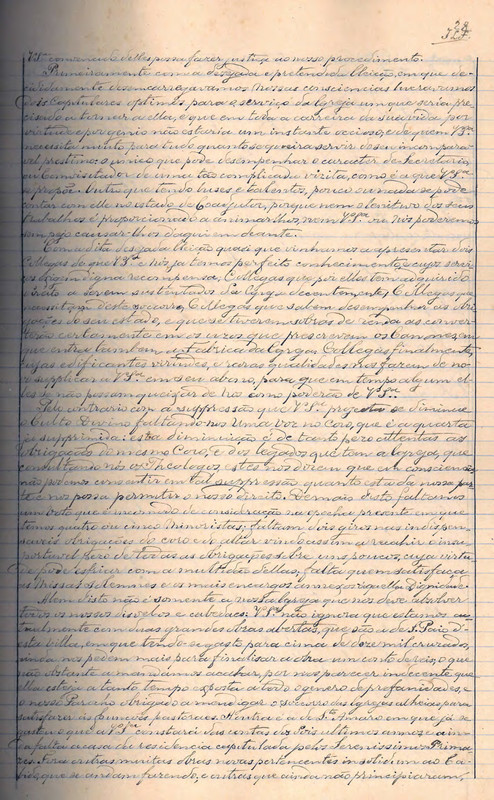 28
V.Sria. conhecendo delles possa fazer justiça ao nosso procedimento.
Primeiramente com a desejada e pretendida Eleição, em que
descarregavamos nossas consciencias lucraremos
dois Capitulares optimos para o serviço da Igreja um que seria
e que em toda a carreira da sua vida por
virtude e por genio não estaria um instante ocioso, e de quem V.Sria.
necessita muito para tudo quanto se queira servir do seu
prestimo: o unico que pode desempenhar o caracter de Secretario
ou Comvisitador de uma tão complicada visita, como é a que V.Sria.
se propõe. Outro que tendo luzes, e talentos, pouco ou nada se pode
contar com elle no estado de Coadjutor, porque nem o
trabalhos é proporcionado a animar-lhos, nem V.Sria. ou Nós poderemos
sem pejo causar-lhos daqui em deante.
Com a dita desejada Eleição quasi que vinhamos a apresentar dois
Collegas de que V.Sria. e Nós, já temos perfeito conhecimento, e cujos serviços
digna recompensa, Collegas que por elles tem adquirido
direito a serem sustentados da Igreja decentemente; Collegas que
necessitam deste socorro, Collegas que sabem desempenhar as obrigações
do seu estado, e que se tiverem sobras de renda as converterão
certamente em os usos que prescrevem os Canones, em
que entra tambem a Fabrica da Igreja: Collegas finalmente
cujas edificantes virtudes, e raras qualidades Nos fazem de novo
supplicar a V.Sria. em seu abono, para que em tempo algum elles
se não possam queixar de Nós como poderão de V.Sria.
Pelo contrario com a suppressão que V.Sria. projecta se diminue
o Culto Divino faltando-nos uma voz no Coro, que é a quarta
já supprimida: esta diminuição é de tanto pezo attentas as
obrigações do mesmo Coro, e dos legados que tem a Igreja, que
consultando nós os Theologos estes nos dizem que em consciencia
não podemos consentir em tal suppressão quanto esta da nossa parte
e nos possa permittir o nosso direito. Demais disto faltamos
um voto que é um fundo de consideração na epocha presente em que
temos quatro ou cinco Minoristas; faltam dois giros nas indispensaveis
obrigações do coro e do altar vindo assim a recahir o insuportavel
pezo de todas as obrigações sobre uns poucos, cuja virtude
pode esfriar com a multidão dellas, falta quem satisfaça
as Missas solemnes e os mais encargos annexos áquella Dignidade.
Alem disto não é somente a nossa Igreja que nos deve absorver
todos os nossos disvelos e cabedaes: V.Sria. não ignora que estamos actualmente
com duas grandes obras abertas, que são a de S. Paio
desta villa, em que tendo-se gasto para cima de doze mil cruzados,
ainda nos pedem mais para finalisar a obra um conto de reis, o que
não obstante a mandamos acabar, por nos parecer indecente que
ella esteja a tanto tempo exposta a todo o genero de profanidades, e
o nosso Parocho obrigado a mendigar o socorro das Igrejas alheias para
satisfazer as funcções pastoraes. A outra é a de Sto. Amaro em que já se
gastou o que a V.Sria. constará das contas dos dois ultimos annos e ainda
falta a casa de residencia capitulada pelo Serenissimo
Fora outras muitas obras novas pertencentes in solidum ao Cabido,
que se andam fazendo, e outras que ainda não principiaram,